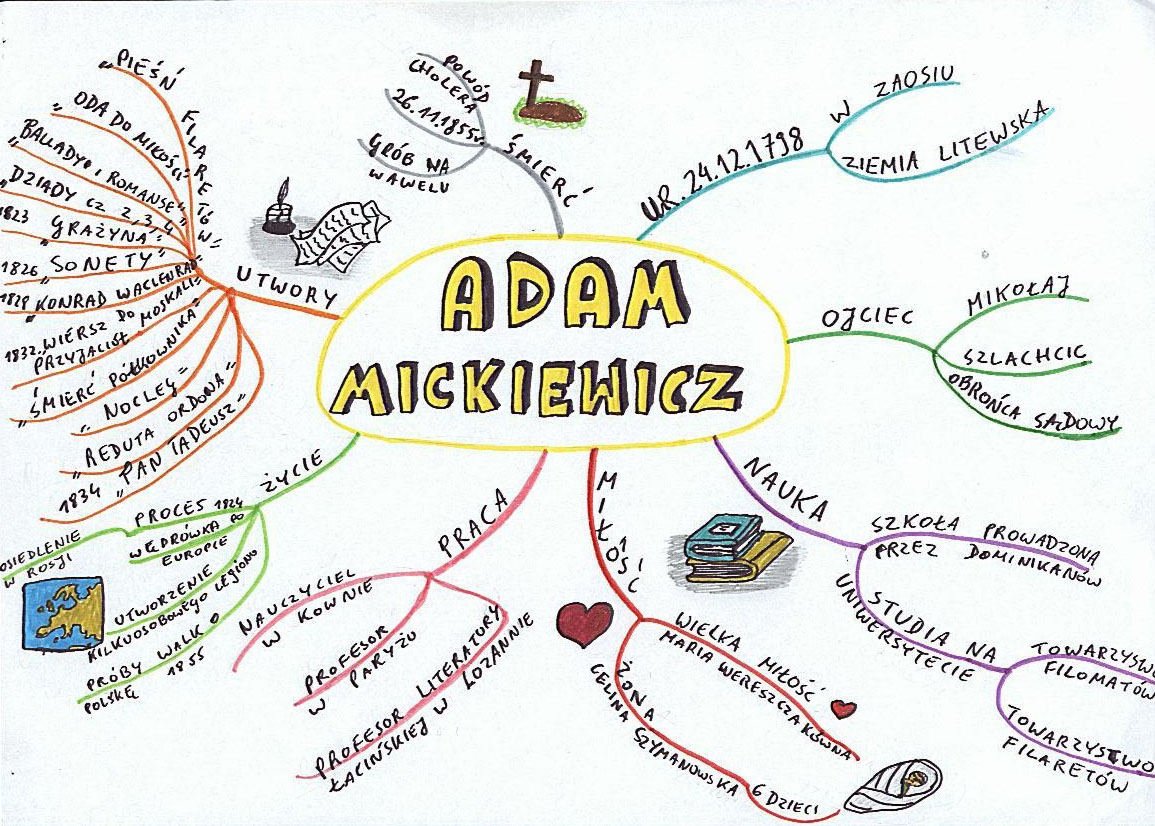 ADAM
MICKIEWICZ
UR. 24.12.1798
W ZAOSIU
ZIEMIA LITEWSKA
OJCIEC
MIKOŁAJ
SZLACHCIC
OBROŃCA SĄDOWY
NAUKA
SZKOŁA PROWADZONA
PRZEZ DOMINIKANÓW
STUDIA NA
UNIWERSYTECIE
TOWARZYSTWO
FILOMATÓW
TOWARZYSTWO
FILARETÓW
MIŁOŚĆ
WIELKA MIŁOŚĆ
MARIA WERESZCZAKÓWNA
ŻONA
CELINA SZYMANOWSKA
6 DZIECI
PRACA
NAUCZYCIEL
W KOWNIE
PROFESOR
W PARYŻU
PROFESOR LITERATURY
ŁACIŃSKIEJ W LOZANNIE
ŻYCIE
PROCES 1824
OSIEDLENIE
W ROSJI
WĘDRÓWKA PO
EUROPIE
UTWORZENIE
KILKUOSOBOWEGO LEGIONU
PRÓBY WALK O
POLSKĘ 1855
UTWORY
„PIEŚŃ FILARETÓW"
„ODA DO MŁOŚCI"
„BALLADY I ROMANSE"
„DZIADY CZ 2,3,4
1823 „GRAŻYNA"
1826 „SONETY"
1828 „KONRAD WACLENRAD"
1832 „WIERSZ DO
PRZYJACIÓŁ MOSKALI"
„ŚMIERĆ PÓŁKOWNIKA"
„NOCLEG"
„REDUTA ORDONA"
1834 „PAN TADEUSZ"
ŚMIERĆ
POWÓD
CHOLERA
26.11.1855r.
GRÓB NA
WAWELU